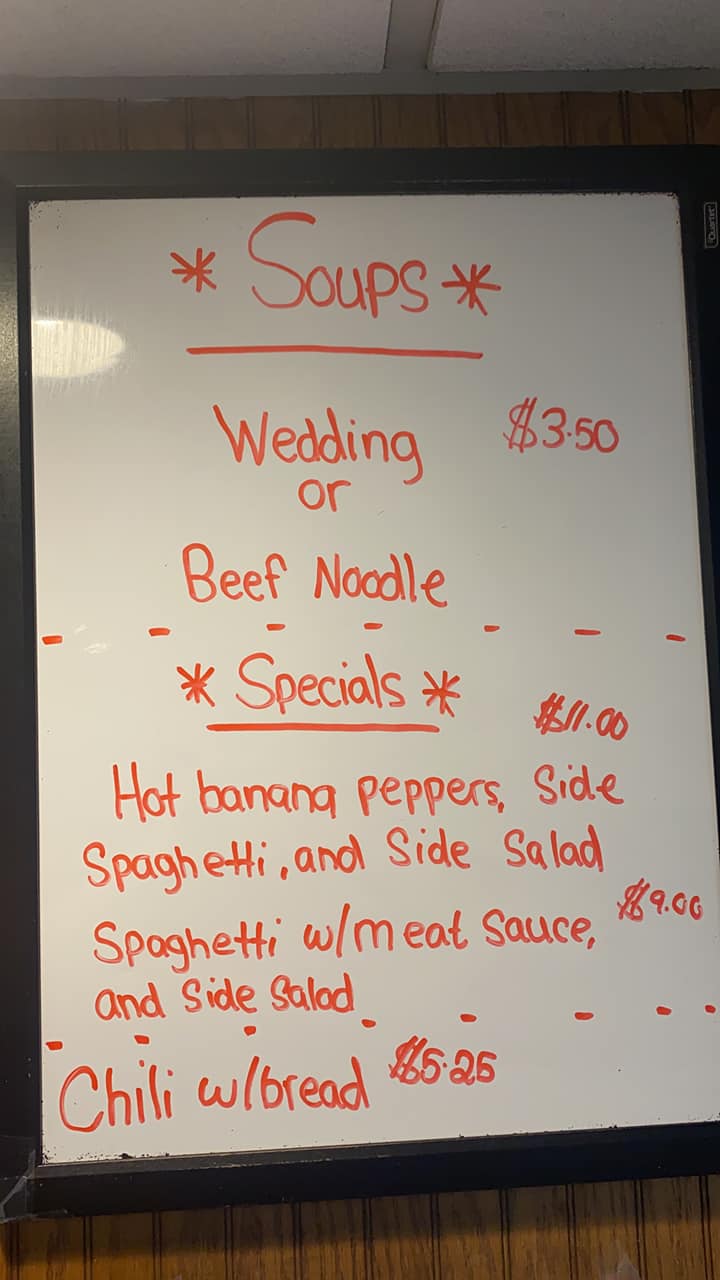 * Soups *
Wedding $3.50
or
Beef Noodle
* Specials *
$11.00
Hot banana peppers, Side
Spaghetti, and Side Salad
$9.00
Spaghetti w/meat Sauce,
and Side Salad
Chili w/bread $5.25
Quartet